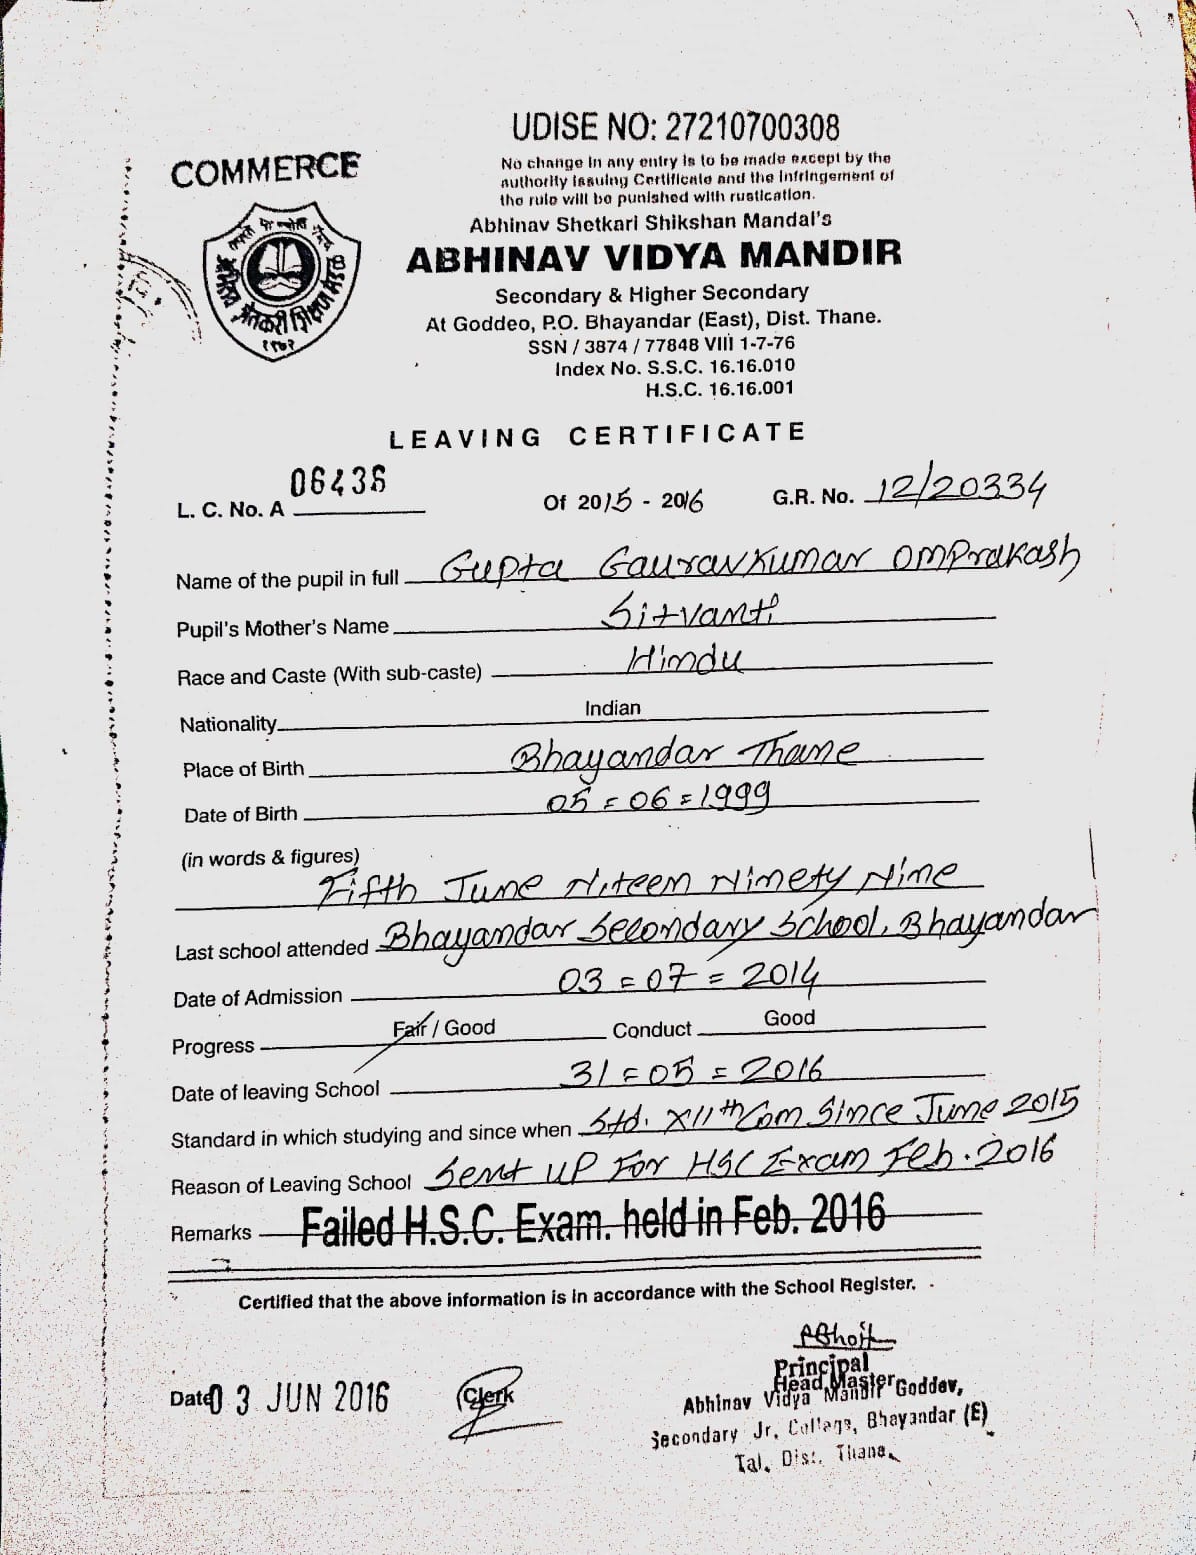 UDISE NO: 27210700308
COMMERCE
No change in any entry is to be made except by the
authority issuing Certificate and the infringement of
the rule will be punished with rustication.
Abhinav Shetkari Shikshan Mandal's
ABHINAV VIDYA MANDIR
Secondary & Higher Secondary
At Goddeo, P.O. Bhayandar (East), Dist. Thane.
SSN / 3874 / 77848 VIII 1-7-76
Index No. S.S.C. 16.16.010
H.S.C. 16.16.001
शेतकरी शिक्षण मंडळ
LEAVING CERTIFICATE
L. C. No. A 06436 Of 2015 - 2016 G.R. No. 12/20334
Name of the pupil in full Gupta Gauravkumar Omprakash
Pupil's Mother's Name Sitvanti
Race and Caste (With sub-caste) Hindu
Nationality Indian
Place of Birth Bhayandar Thane
Date of Birth 05=06=1999
(in words & figures)
Fifth June Niteen Ninety Nine
Last school attended Bhayandar Secondary School, Bhayandar
Date of Admission 03=07=2014
Progress Fair / Good Conduct Good
Date of leaving School 31=05=2016
Standard in which studying and since when Std. XIIth Com Since June 2015
Reason of Leaving School Sent up For HSC Exam Feb. 2016
Remarks Failed H.S.C. Exam. held in Feb. 2016
Certified that the above information is in accordance with the School Register.
Date 03 JUN 2016 Clerk
Principal
Head Master
Abhinav Vidya Mandir Goddev,
Secondary Jr. College, Bhayandar (E)
Tal. Dist. Thane.